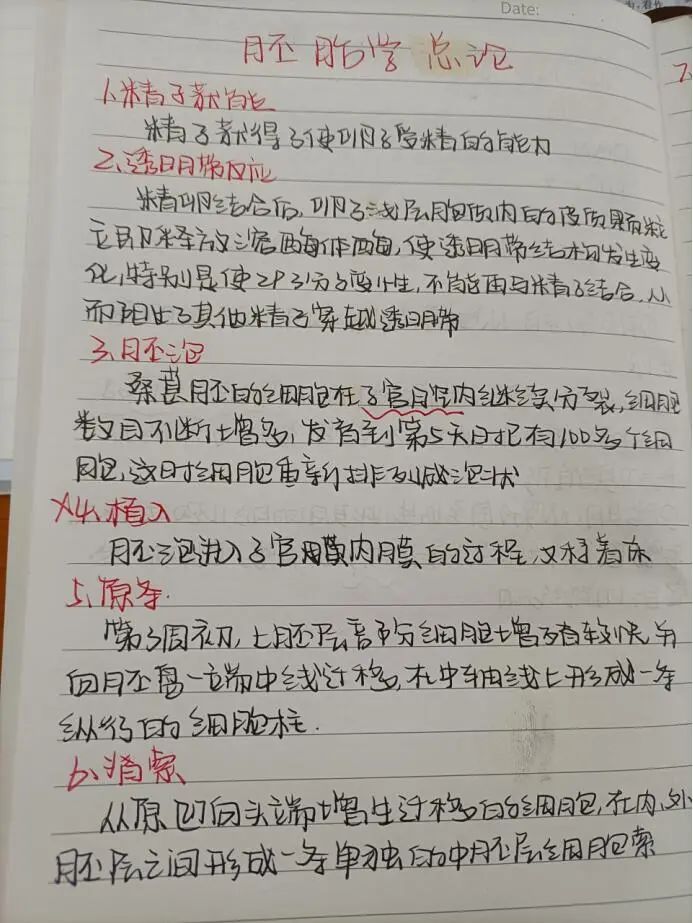 Date:
胚胎学总论
1、精子获能
精子获得了使卵子受精的能力
2、透明带反应
精卵结合后,卵子浅层胞质内的皮质颗粒
立即释放溶酶体酶,使透明带结构发生变
化,特别是使ZP3分子变性,不能再与精子结合,从
而阻止了其他精子穿越透明带
3、胚泡
桑葚胚的细胞在子宫腔内继续分裂,细胞
数目不断增多,发育到第5天时已有100多个细
胞,这时细胞重新排列成泡状
*4、植入
胚泡进入子宫内膜的过程,又称着床
5、原条
第3周初,上胚层部分细胞增殖较快,并
向胚盘一端中线迁移,在中轴线上形成一条
纵行的细胞柱.
6、脊索
从原凹向头端增生迁移的细胞,在内、外
胚层之间形成一条单独的中胚层细胞索